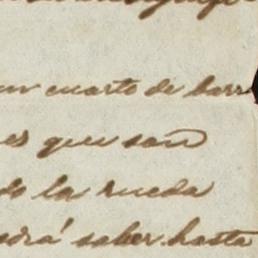 un cuarto de barr
es que son
do la rueda
odrá saber hasta